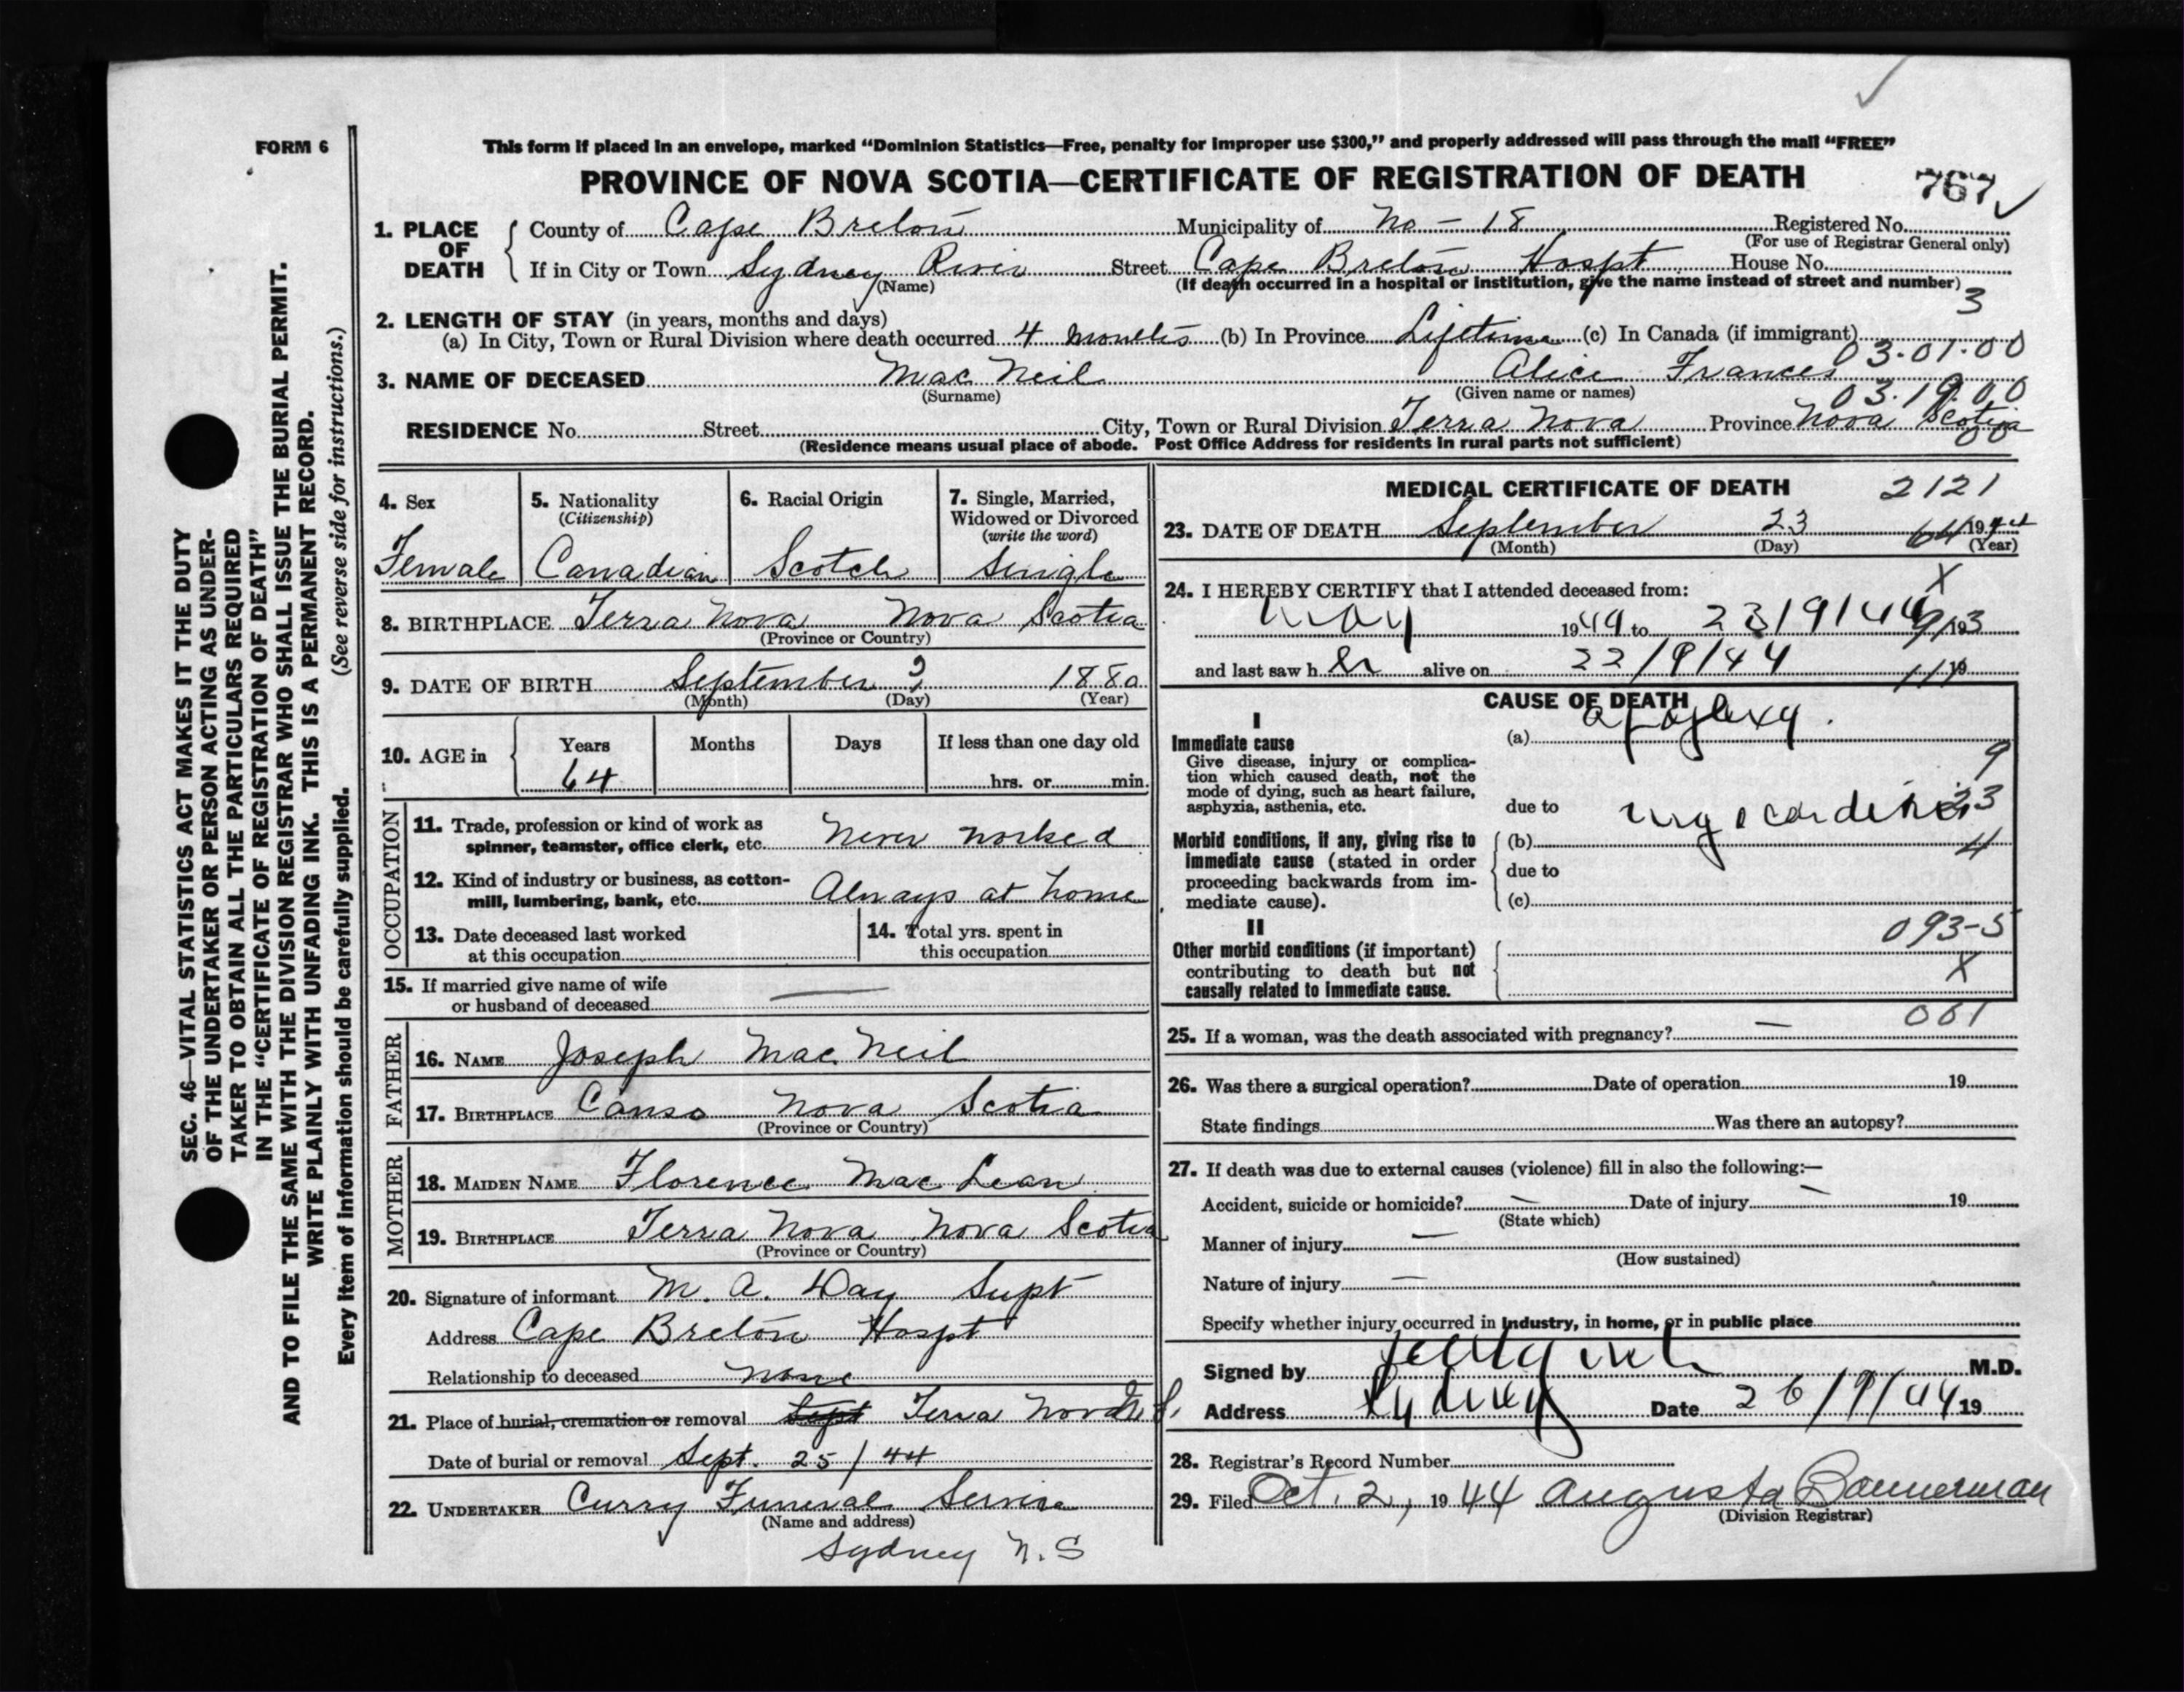 FORM 6
This form if placed in an envelope, marked “Dominion Statistics—Free, penalty for improper use $300,” and properly addressed will pass through the mail “FREE”
PROVINCE OF NOVA SCOTIA—CERTIFICATE OF REGISTRATION OF DEATH
767
1. PLACE OF DEATH
County of Cape Breton Municipality of No - 18 Registered No.
(For use of Registrar General only)
If in City or Town Sydney River Street Cape Breton Hospt House No.
(Name) (If death occurred in a hospital or institution, give the name instead of street and number)
3
2. LENGTH OF STAY (in years, months and days)
(a) In City, Town or Rural Division where death occurred 4 months (b) In Province Lifetime (c) In Canada (if immigrant)
03.01.00
3. NAME OF DECEASED Mac Neil Alice Frances
(Surname) (Given name or names)
03.19.00
RESIDENCE No. Street City, Town or Rural Division Terra Nova Province Nova Scotia
(Residence means usual place of abode. Post Office Address for residents in rural parts not sufficient)
4. Sex
Female
5. Nationality
(Citizenship)
Canadian
6. Racial Origin
Scotch
7. Single, Married,
Widowed or Divorced
(write the word)
Single
8. BIRTHPLACE Terra Nova Nova Scotia
(Province or Country)
9. DATE OF BIRTH September 1880
(Month) (Day) (Year)
10. AGE in
Years Months Days If less than one day old
64 hrs. or min.
OCCUPATION
11. Trade, profession or kind of work as
spinner, teamster, office clerk, etc. Never worked
12. Kind of industry or business, as cotton-
mill, lumbering, bank, etc. Always at home
13. Date deceased last worked
at this occupation
14. Total yrs. spent in
this occupation
15. If married give name of wife
or husband of deceased
FATHER
16. NAME Joseph Mac Neil
17. BIRTHPLACE Canso Nova Scotia
(Province or Country)
MOTHER
18. MAIDEN NAME Florence Mac Lean
19. BIRTHPLACE Terra Nova Nova Scotia
(Province or Country)
20. Signature of informant M. A. Day Supt
Address Cape Breton Hospt
Relationship to deceased none
21. Place of burial, cremation or removal Sept Terra Nova N.S.
Date of burial or removal Sept. 25/44
22. UNDERTAKER Curry Funeral Service
(Name and address)
Sydney N.S
MEDICAL CERTIFICATE OF DEATH
2121
23. DATE OF DEATH September 23 1944
(Month) (Day) (Year)
64
24. I HEREBY CERTIFY that I attended deceased from:
X
May 1944 to 23/9/44 19
and last saw her alive on 22/9/44 19
CAUSE OF DEATH
I
Immediate cause
Give disease, injury or complica-
tion which caused death, not the
mode of dying, such as heart failure,
asphyxia, asthenia, etc.
(a) apoplexy.
9
due to
23
Morbid conditions, if any, giving rise to
immediate cause (stated in order
proceeding backwards from im-
mediate cause).
(b)
4
due to
(c)
II
093-5
Other morbid conditions (if important)
contributing to death but not
causally related to immediate cause.
X
061
25. If a woman, was the death associated with pregnancy? —
26. Was there a surgical operation? Date of operation 19
State findings Was there an autopsy?
27. If death was due to external causes (violence) fill in also the following:—
Accident, suicide or homicide? — Date of injury — 19
(State which)
Manner of injury —
(How sustained)
Nature of injury —
Specify whether injury occurred in industry, in home, or in public place
Signed by M.D.
Address Sydney Date 26/9/44 19
28. Registrar's Record Number
29. Filed Oct. 2, 1944 Augusta Bannerman
(Division Registrar)
SEC. 46—VITAL STATISTICS ACT MAKES IT THE DUTY
OF THE UNDERTAKER OR PERSON ACTING AS UNDER-
TAKER TO OBTAIN ALL THE PARTICULARS REQUIRED
IN THE “CERTIFICATE OF REGISTRATION OF DEATH”
AND TO FILE THE SAME WITH THE DIVISION REGISTRAR WHO SHALL ISSUE THE BURIAL PERMIT.
WRITE PLAINLY WITH UNFADING INK. THIS IS A PERMANENT RECORD.
Every item of information should be carefully supplied. (See reverse side for instructions.)